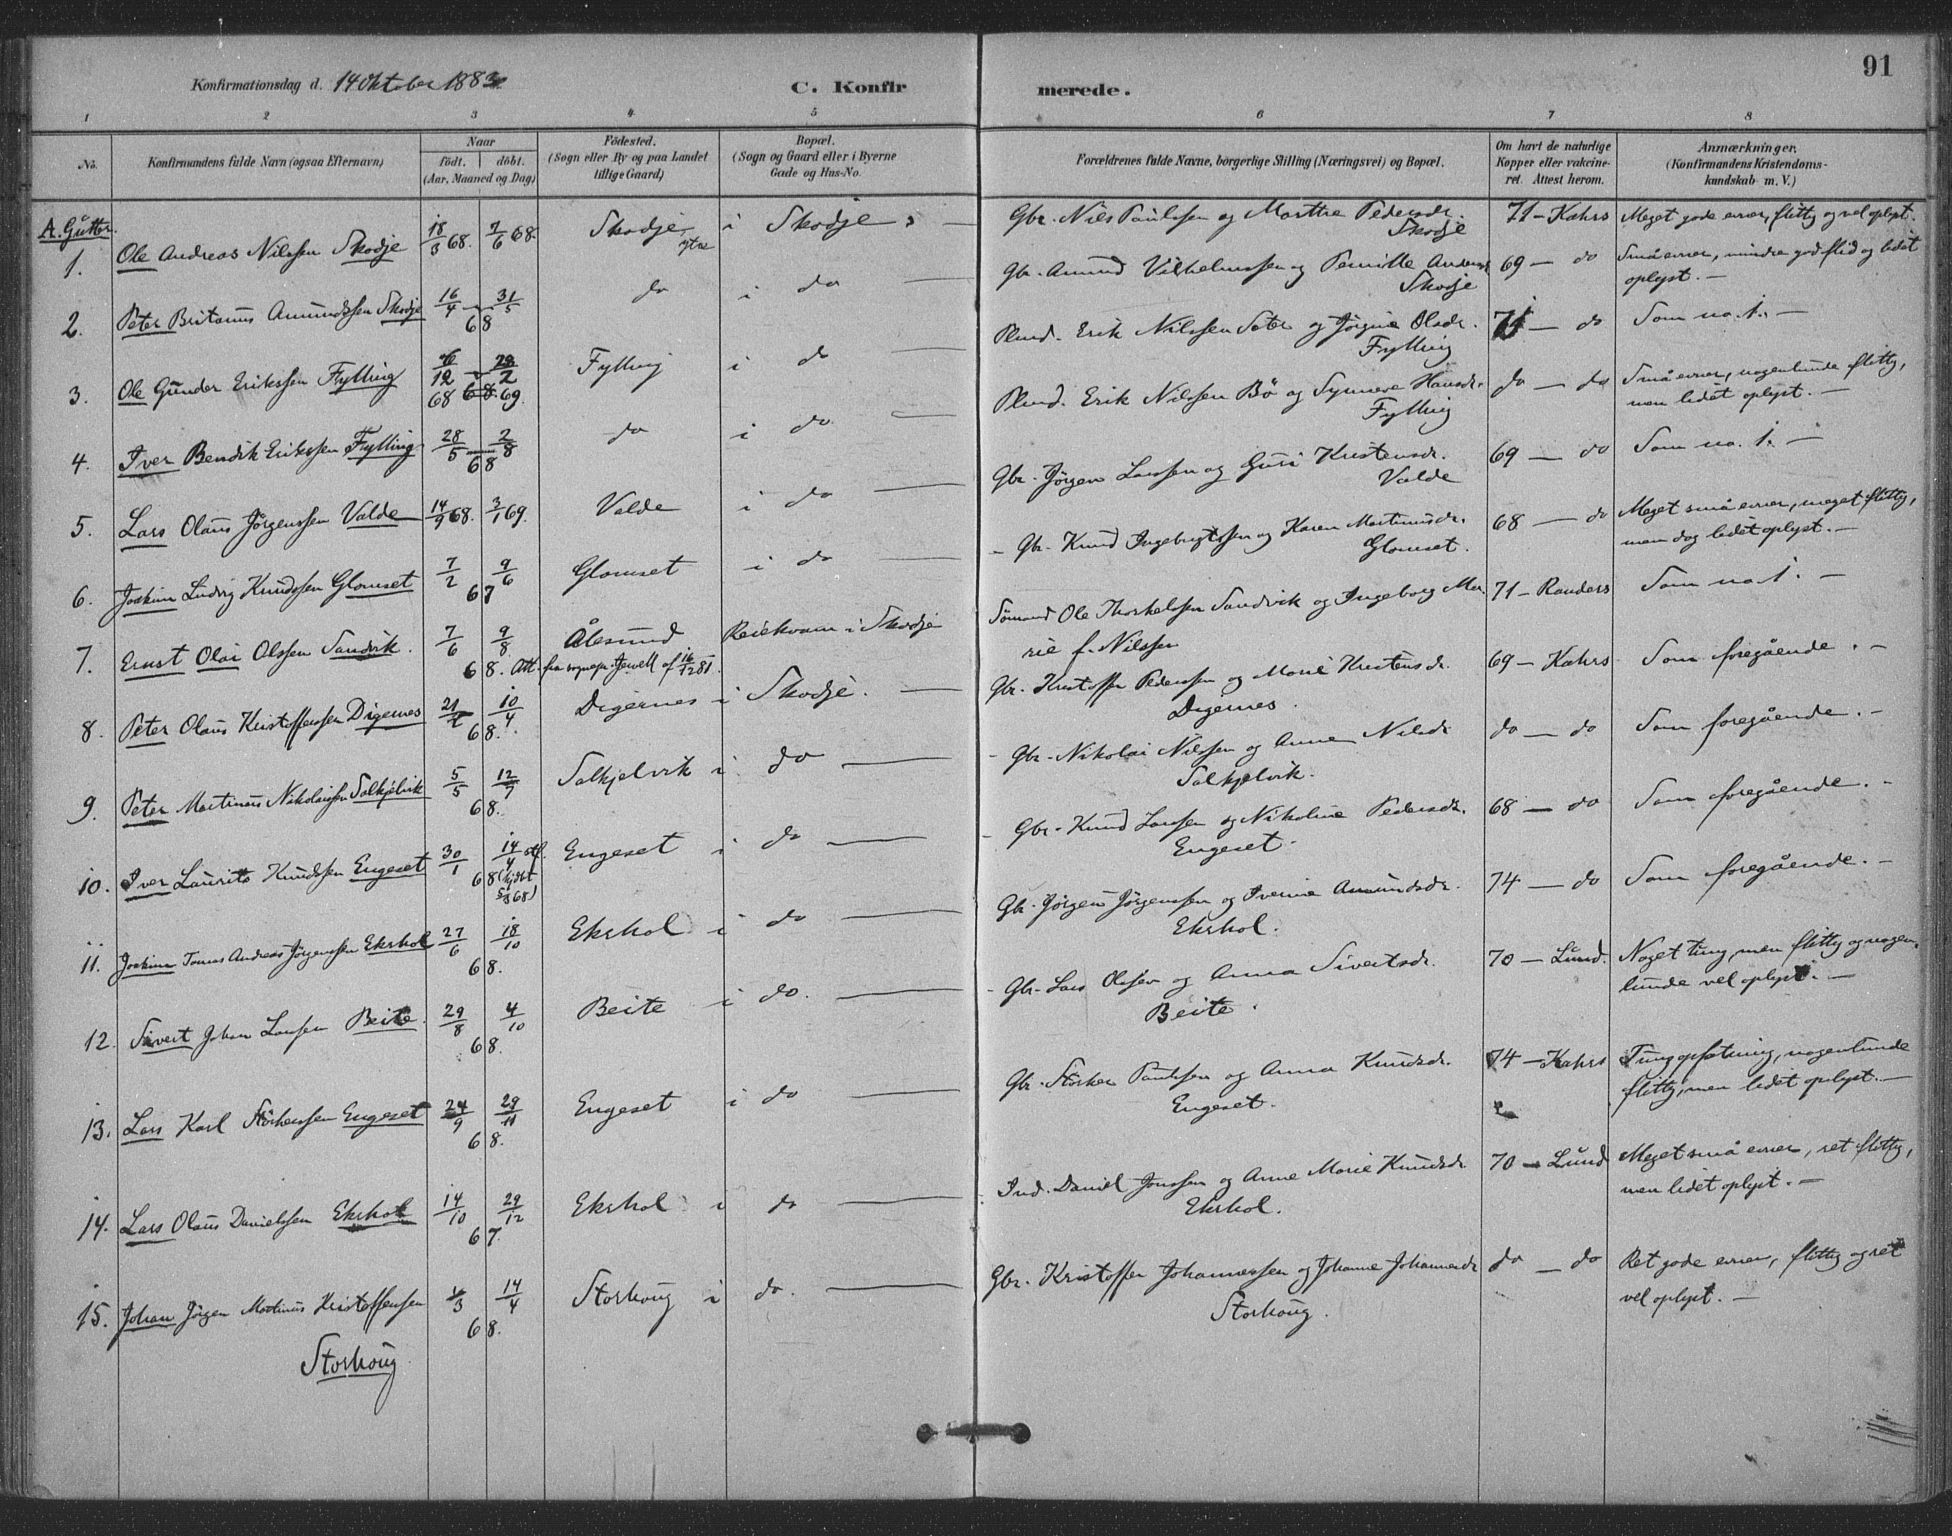 91
Konfirmationsdag d. 14 Oktober 1883
C. Konfirmerede.
1 2 3 4 5 6 7 8
No.
Konfirmandens fulde Navn (ogsaa Efternavn)
Naar
födt. döbt.
(Aar, Maaned og Dag)
Födested.
(Sogn eller By og paa Landet
tillige Gaard)
Bopæl.
(Sogn og Gaard eller i Byerne
Gade og Hus-No.
Forældrenes fulde Navne, borgerlige Stilling (Næringsvei) og Bopæl.
Om havt de naturlige
Kopper eller vakcine-
ret. Attest herom.
Anmærkninger.
(Konfirmandens Kristendoms-
kundskab m. V.)
A. Gutter.
1. Ole Andreas Nilssen Skodje 18/3 68. 7/6 68. Skodje i Skodje Gbr. Nils Paulssen og Marthe Pedersdr. 71 - Kahrs Meget gode evner, flittig og vel oplyst.
ytre Skodje
2. Peter Britanus Amundssen Skodje 16/4 31/5 68 do i do Gbr. Amund Vilhelmssen og Pernille Andersdr 69 - do Små evner, mindre god flid og lidet
Skodje oplyst. -
3. Ole Gunder Erikssen Fylling 12 68 2 69. Fylling i do Plmd. Erik Nilssen Sæter og Jørgine Olsdr. 71 - do Som no. 1. -
Fylling
4. Iver Bendik Erikssen Fylling 28/5 2/8 68 do i do Plmd. Erik Nilssen Bø og Synneve Hansdr. do - do Små evner, nogenlunde flittig,
Fylling men lidet oplyst. -
5. Lars Olaus Jørgenssen Valde 14/9 68. 3/1 69. Valde i do Gbr. Jørgen Larssen og Guri Kristensdr. 69 - do Som no. 1. -
Valde
6. Joakim Ludvig Knudssen Glomset 7/2 9/6 67 Glomset i do - Gbr. Knud Ingebrigtssen og Karen Martinusdr. 68 - do Meget små evner, meget flittig,
Glomset. men dog lidet oplyst. -
7. Ernst Olai Olssen Sandvik. 7/6 9/8 68. Ålesund Reiekvam i Skodje Sømand Ole Thorkelssen Sandvik og Ingeborg Ma- 71 - Randers Som no 1. -
Att. fra sognepr. Jervell af 16/12 81. rie f. Nilssen
8. Peter Olaus Kristoffersen Digernes 10/4 68. Digernes i Skodje. Gbr. Kristoffer Pederssen og Marie Kristensdr 69 - Kahrs Som foregående. -
Digernes.
9. Peter Martinus Nikolaissen Solkjelvik 5/5 12/7 68. Solkjelvik i do - Gbr. Nikolai Nilssen og Anne Nilsdr do - do Som foregående. -
Solkjelvik.
10. Iver Laurits Knudssen Engeset 30/1 14/4 68 (hjdbt 5/3 68) Engeset i do - Gbr. Knud Larssen og Nikoline Pedersdr. 68 - do Som foregående. -
Engeset.
11. Joakim Tomas Andreas Jørgenssen Ekrhol 27/6 18/10 68. Ekrhol i do Gbr. Jørgen Jørgenssen og Iverine Amundsdr. 74 - do Som foregående. -
Ekrhol.
12. Sivert Johan Larssen Beite. 29/8 4/10 68. Beite i do. - Gbr. Lars Olssen og Anna Sivertsdr. 70 - Lund. Noget tung, men flittig og nogen-
Beite. lunde vel oplyst. -
13. Lars Karl Størkerssen Engeset 24/9 29/11 68. Engeset i do Gbr. Størker Paulssen og Anna Knudsdr. 74 - Kahrs Tung opfatning, nogenlunde
Engeset. flittig, men lidet oplyst. -
14. Lars Olaus Danielssen Ekrhol 14/10 29/12 67. Ekrhol i do - Ind. Daniel Jonssen og Anne Marie Knudsdr 70 - Lund Meget små evner, ret flittig,
Ekrhol. men lidet oplyst. -
15. Johan Jörgen Martinus Kristoffersen 14/4 68. Storhoug i do. Gbr. Kristoffer Johannessen og Johanne Johannesdr do - do Ret gode evner, flittig og ret
Storhoug Storhoug. vel oplyst. -